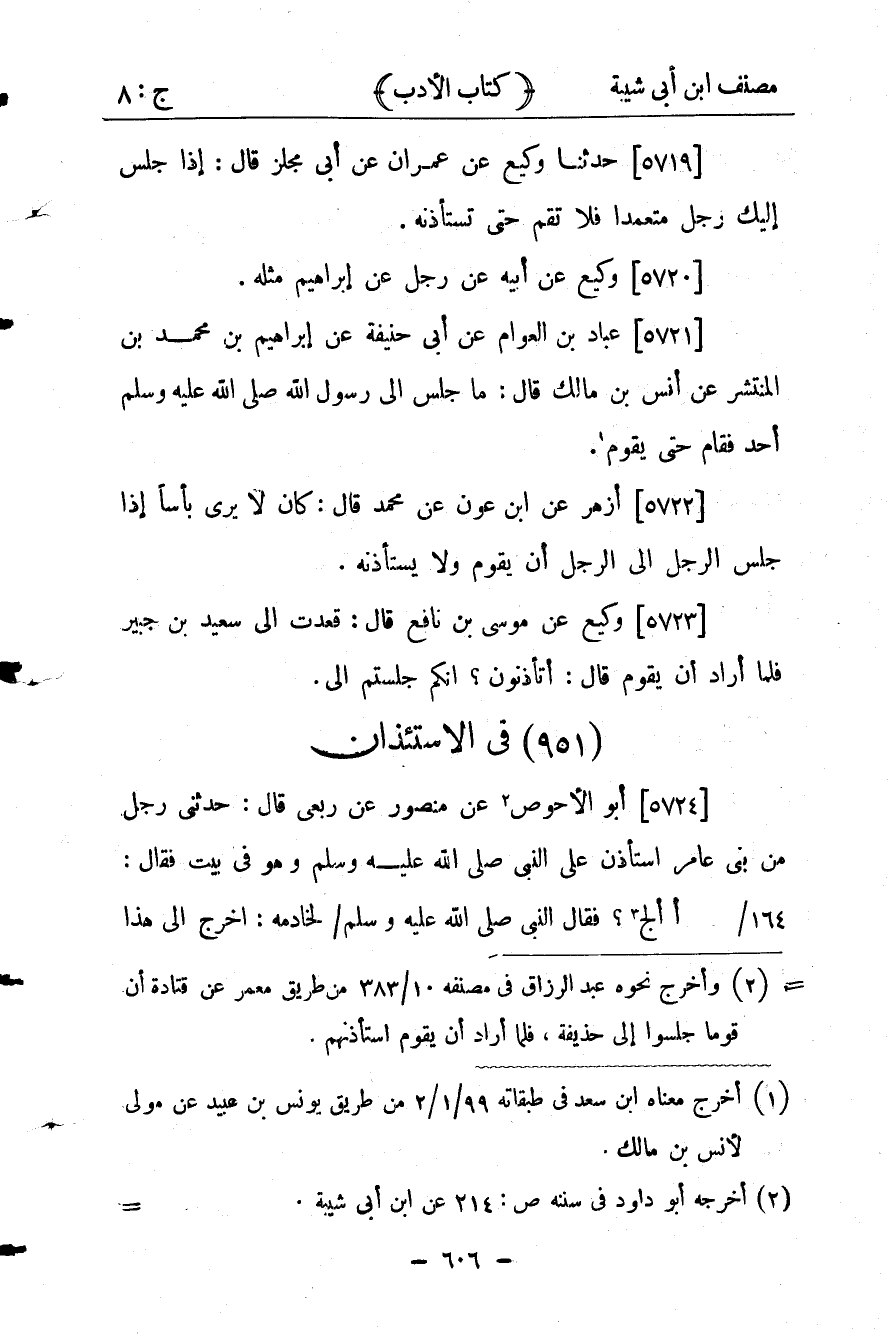 مصنف ابن أبى شيبة ﴿كتاب الأدب﴾ ج : ٨
[٥٧١٩] حدثنا وكيع عن عمران عن أبى مجلز قال : إذا جلس
إليك رجل متعمدا فلا تقم حتى تستأذنه .
[٥٧٢٠] وكيع عن أبيه عن رجل عن إبراهيم مثله .
[٥٧٢١] عباد بن العوام عن أبى حنيفة عن إبراهيم بن محمد بن
المنتشر عن أنس بن مالك قال : ما جلس الى رسول الله صلى الله عليه وسلم
أحد فقام حتى يقوم١.
[٥٧٢٢] أزهر عن ابن عون عن محمد قال : كان لا يرى بأساً إذا
جلس الرجل الى الرجل أن يقوم ولا يستأذنه .
[٥٧٢٣] وكيع عن موسى بن نافع قال : قعدت الى سعيد بن جبير
فلما أراد أن يقوم قال : أتأذنون ؟ انكم جلستم الى .
(٩٥١) فى الاستئذان
[٥٧٢٤] أبو الأحوص٢ عن منصور عن ربعى قال : حدثنى رجل
من بنى عامر استأذن على النبى صلى الله عليه وسلم و هو فى بيت فقال :
١٦٤/ أ ألج٣ ؟ فقال النبى صلى الله عليه و سلم/ لخادمه : اخرج الى هذا
= (٢) وأخرج نحوه عبد الرزاق فى مصنفه ٣٨٣/١٠ من طريق معمر عن قتادة أن
قوما جلسوا إلى حذيفة ، فلما أراد أن يقوم استأذنهم .
(١) أخرج معناه ابن سعد فى طبقاته ٢/١/٩٩ من طريق يونس بن عبيد عن مولى
لأنس بن مالك .
(٢) أخرجه أبو داود فى سننه ص : ٢١٤ عن ابن أبى شيبة . =
- ٦٠٦ -